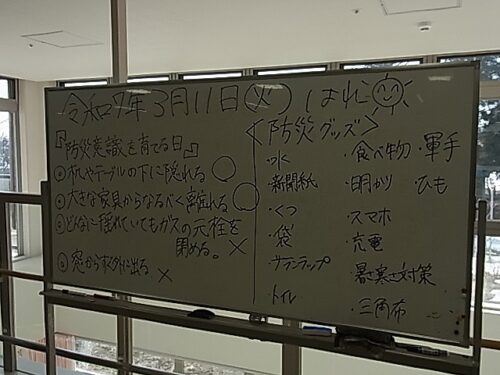 令和7年3月11日(火) はれ
『防災意識を育てる日』
・机やテーブルの下に隠れる ○
・大きな家具からなるべく離れる ○
・どんなに揺れていてもガスの元栓を
閉める。 ×
・窓からすぐ外に出る ×
<防災グッズ>
・水
・新聞紙
・くつ
・袋
・サランラップ
・トイレ
・食べ物
・明かり
・スマホ
・充電
・暑さ寒さ対策
・三角布
・軍手
・ひも